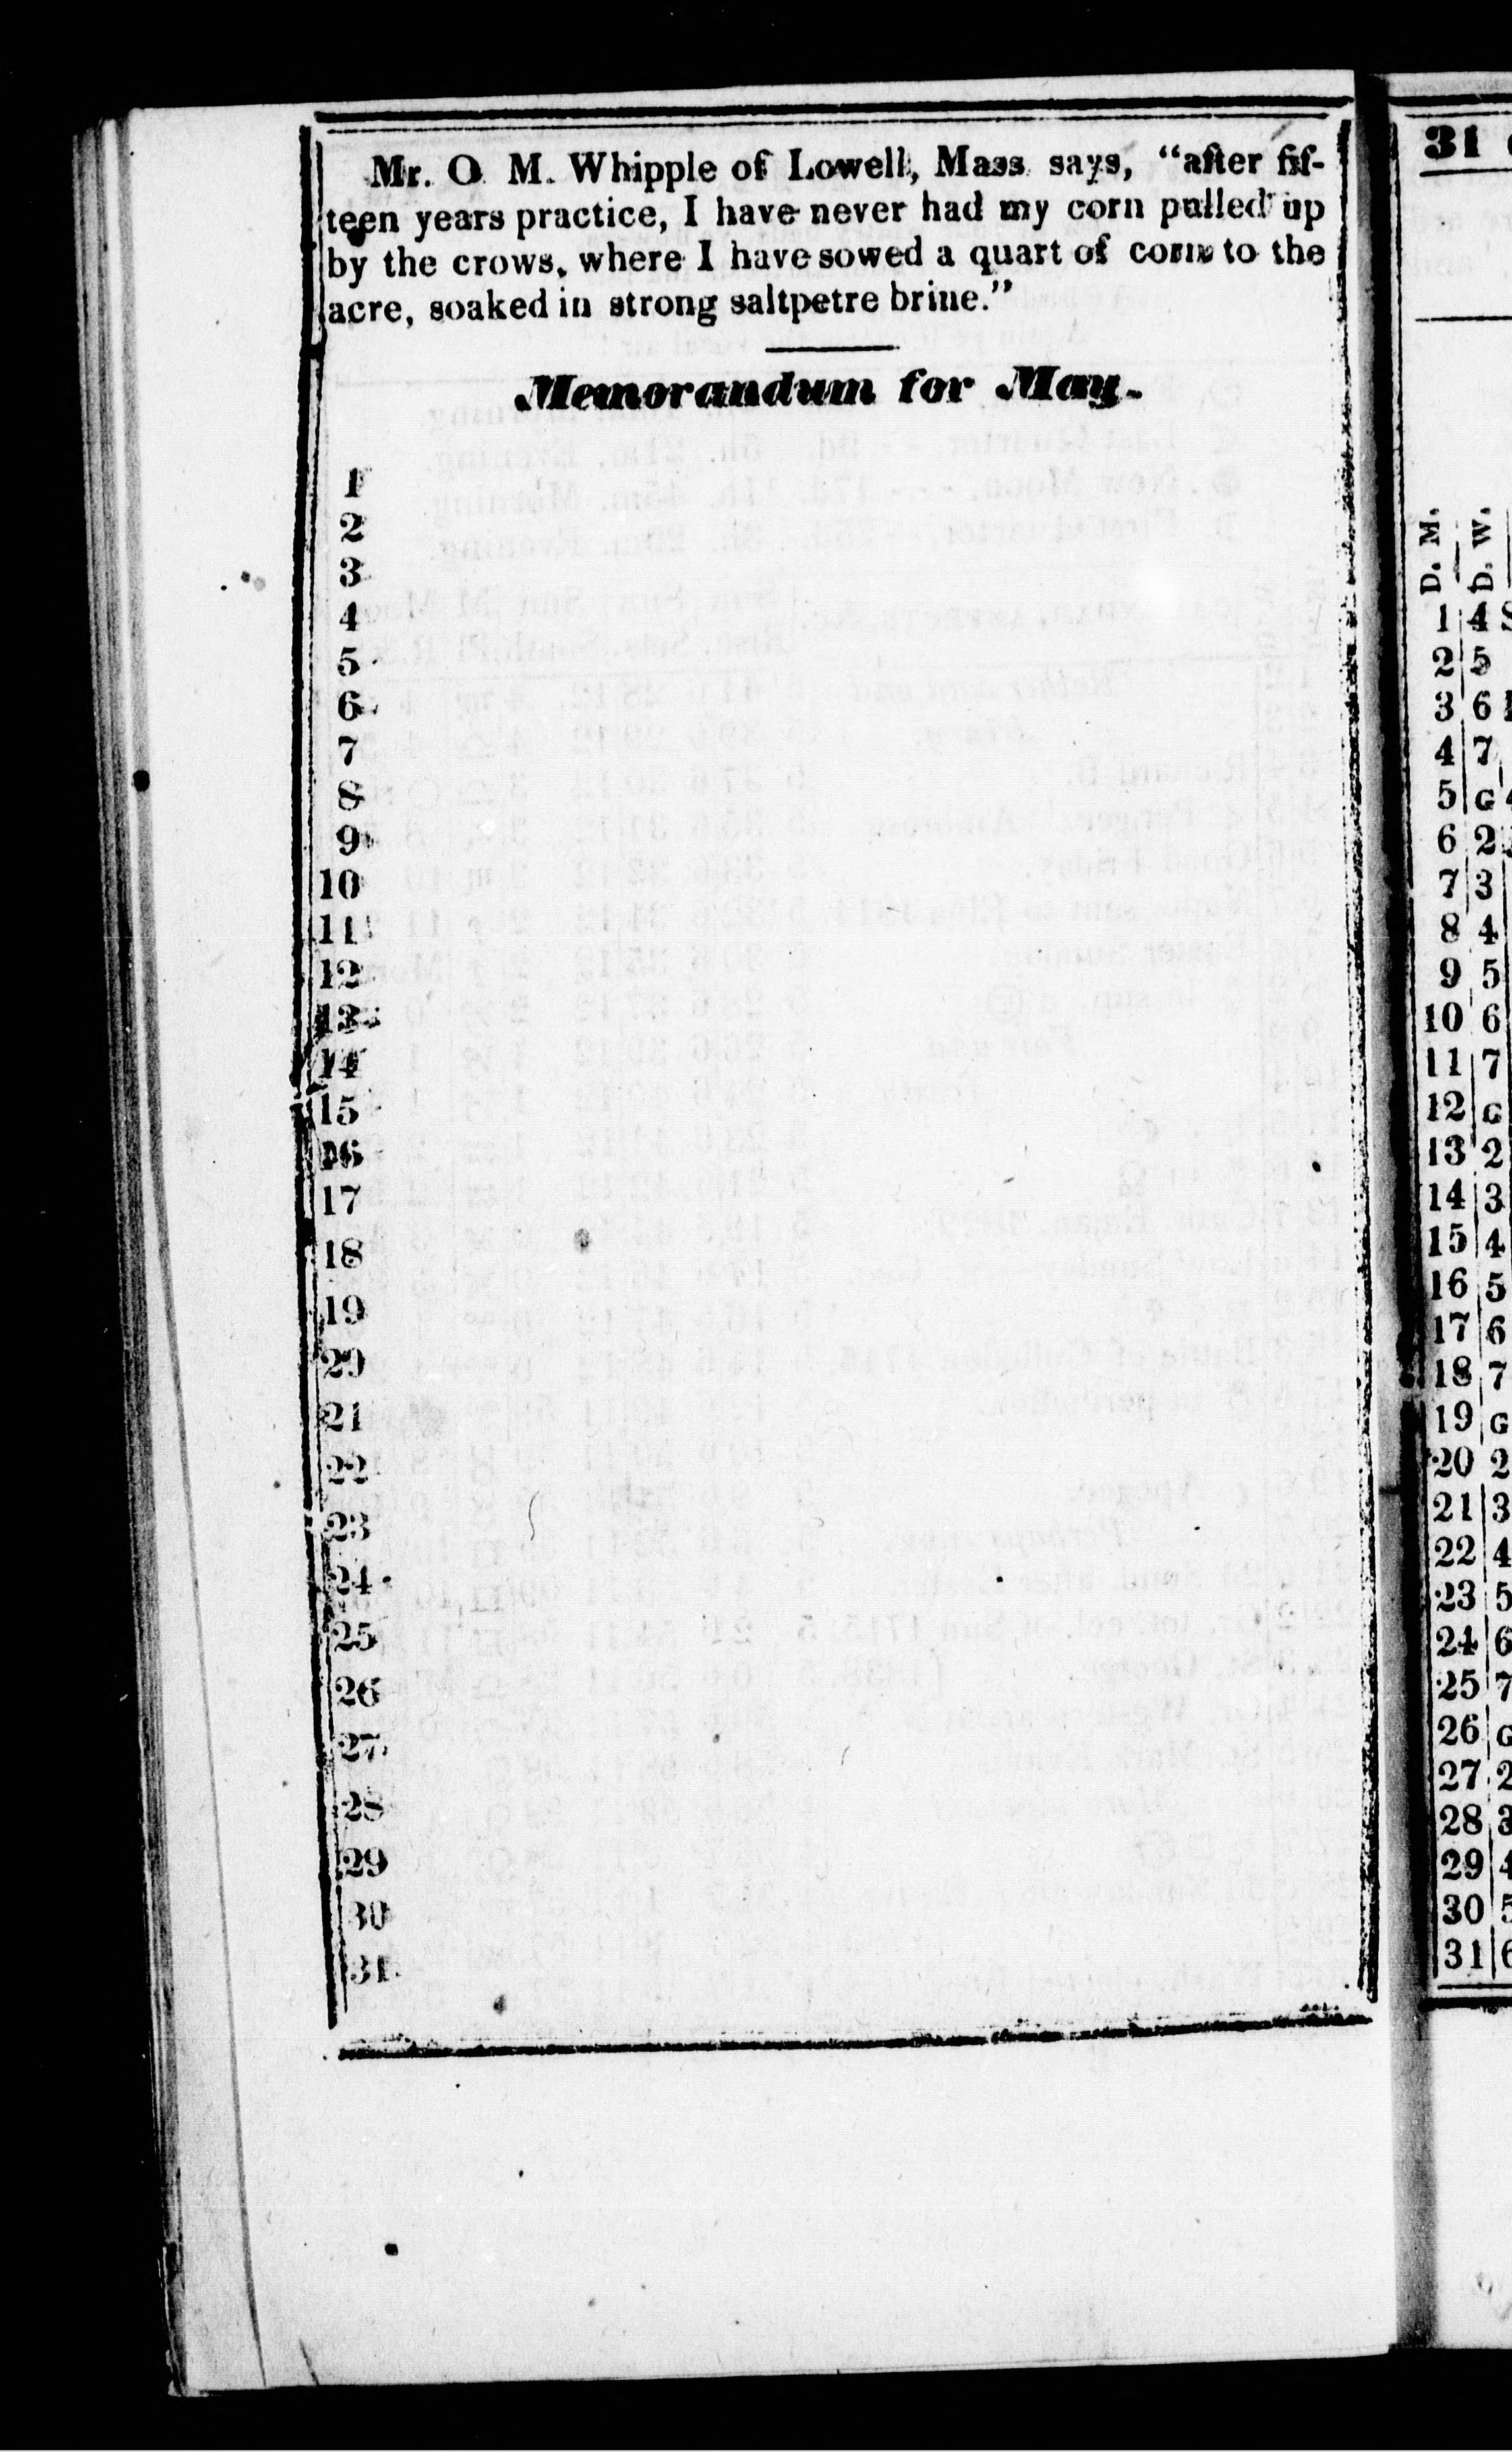 Mr. O. M. Whipple of Lowell, Mass. says, "after fif-
teen years practice, I have never had my corn pulled up
by the crows, where I have sowed a quart of corn to the
acre, soaked in strong saltpetre brine."
Memorandum for May.
1
2
3
4
5
6
7
8
9
10
11
12
13
14
15
16
17
18
19
20
21
22
23
24
25
26
27
28
29
30
31
31
D. M. D. W.
1 4
2 5
3 6
4 7
5 G
6 2
7 3
8 4
9 5
10 6
11 7
12 G
13 2
14 3
15 4
16 5
17 6
18 7
19 G
20 2
21 3
22 4
23 5
24 6
25 7
26 G
27 2
28 3
29 4
30 5
31 6